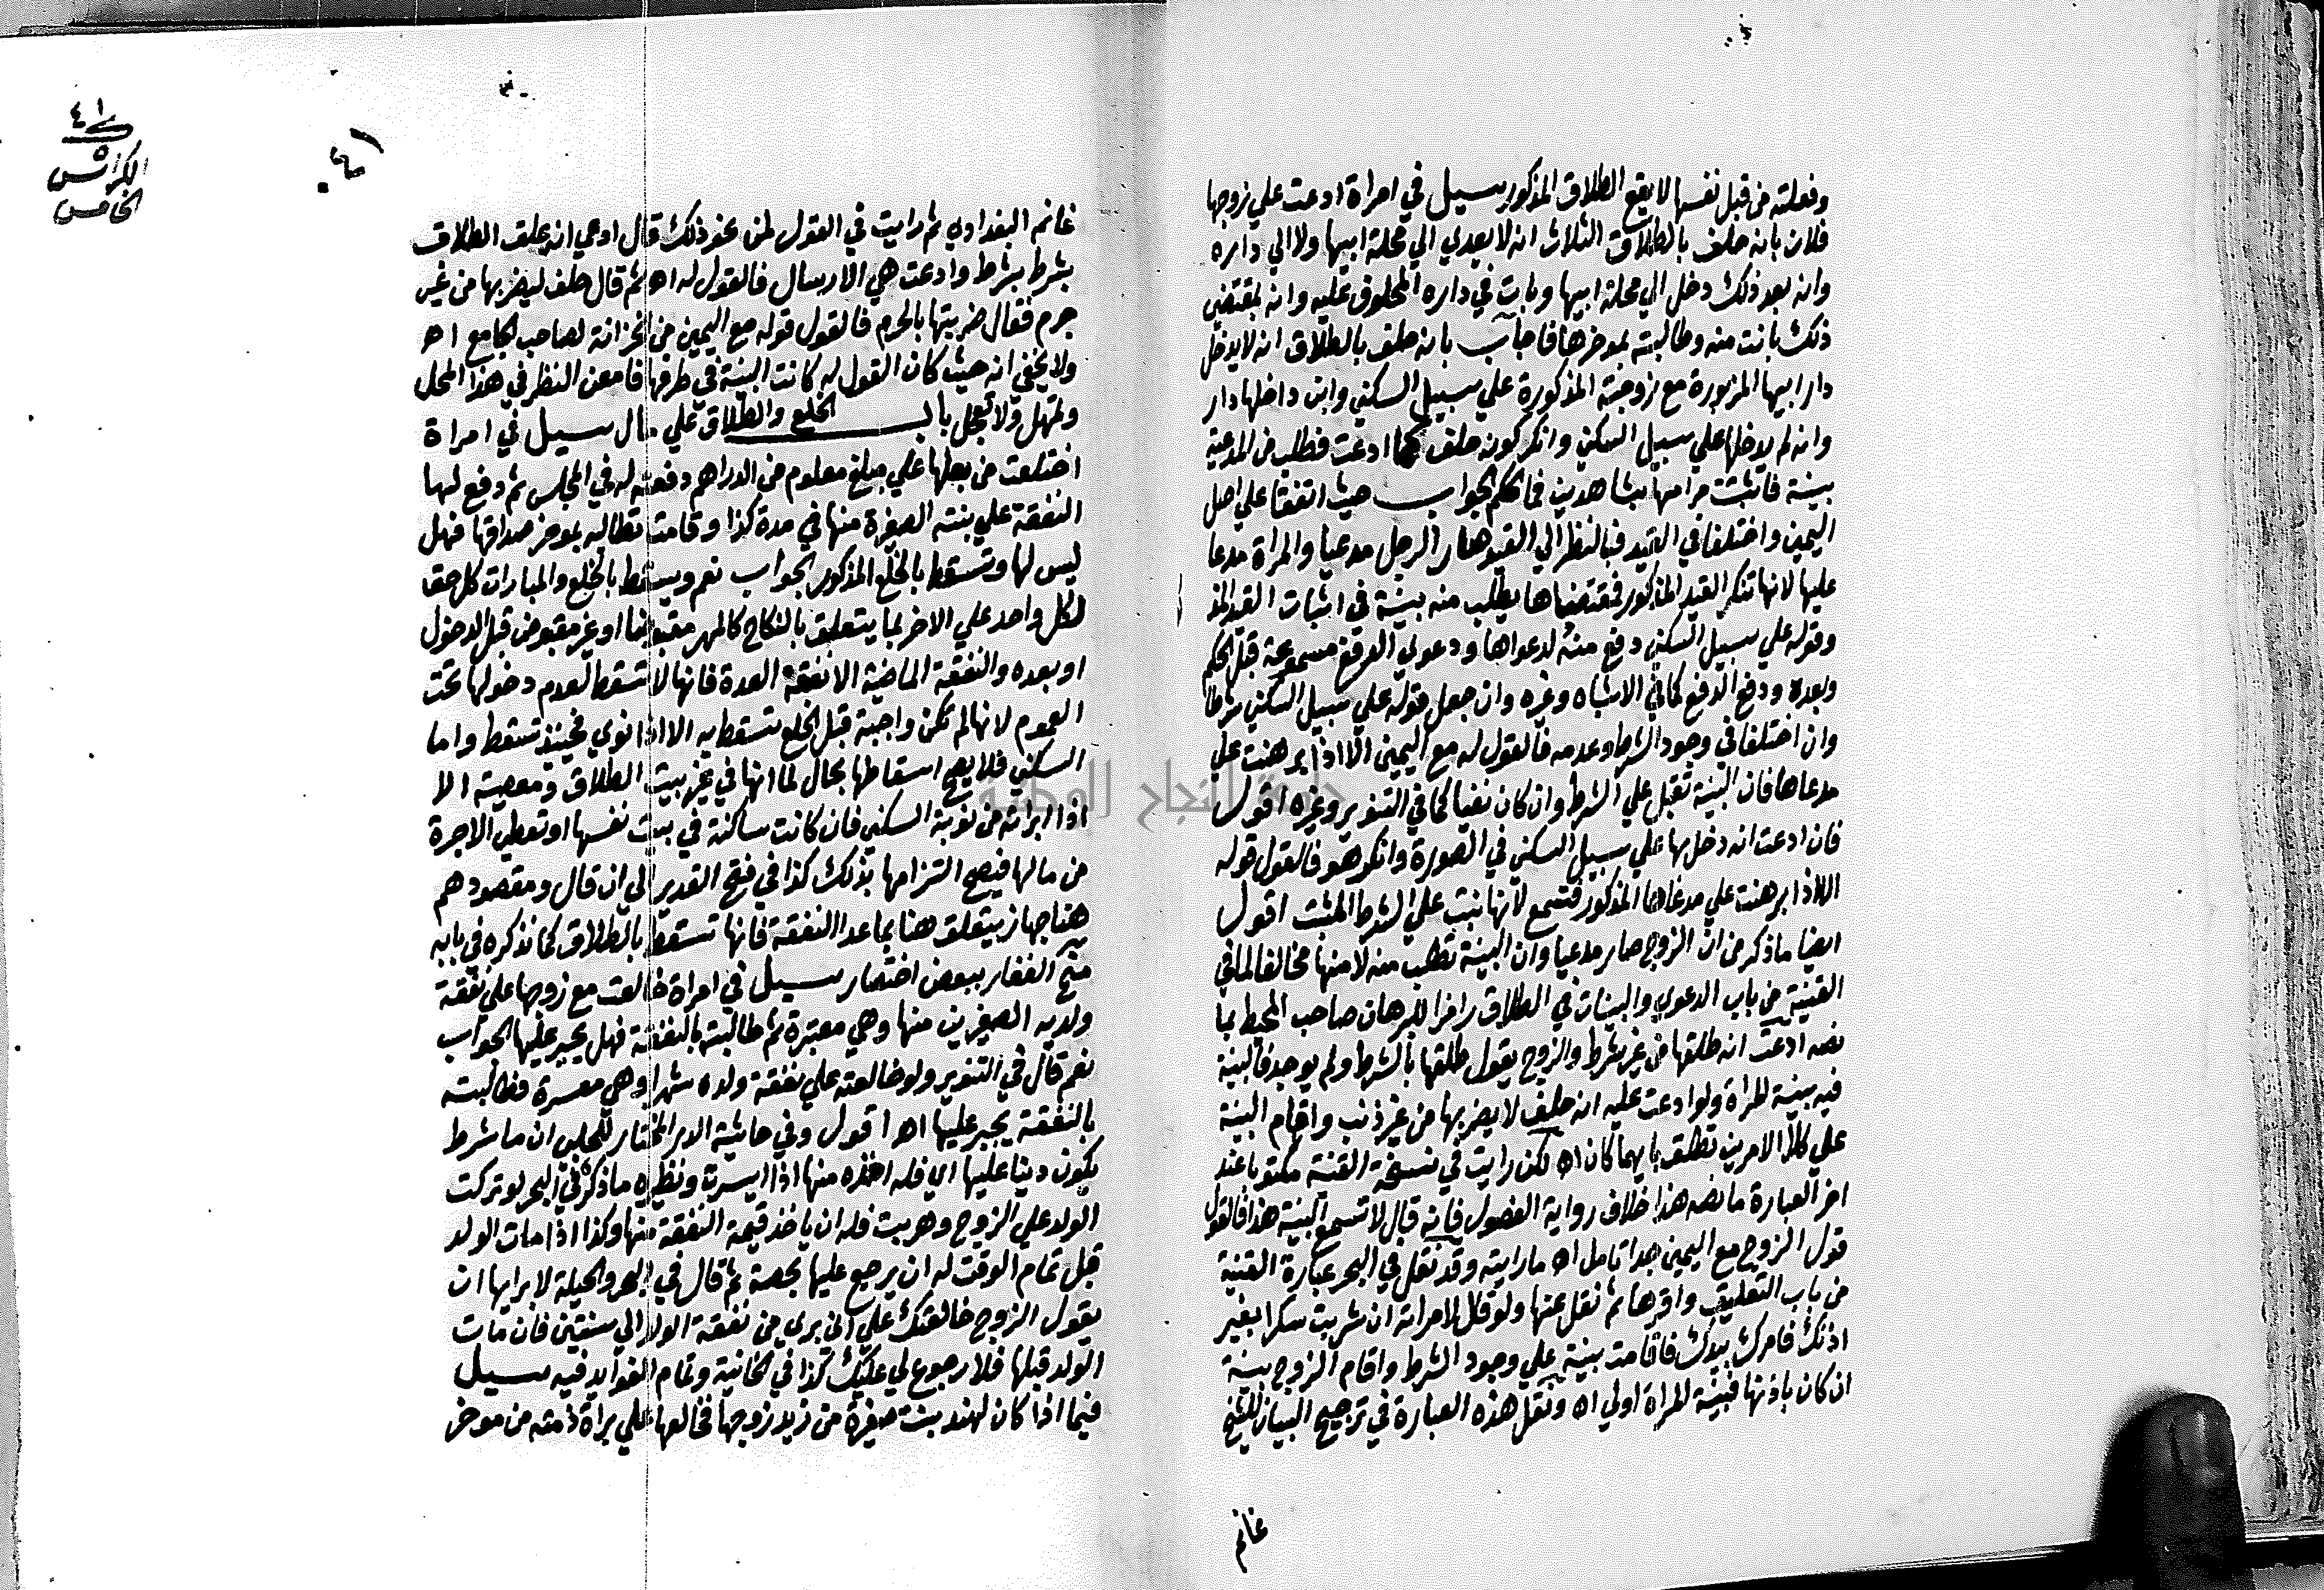 وفعلته من قبل نفسها لا يقع الطلاق المذكور سيل في امراة ادعت علي زوجها
فلان بانه حلف بالطلاق الثلاث انه لا يعدي الي محلة ابيها ولا الي داره
وانه بعد ذلك دخل الي محلة ابيها وبات في داره المحلوف عليه وانه بمقتضي
ذلك بانت منه وطالبته بموخرها فاجاب بانه حلف بالطلاق انه لا يدخل
دار ابيها المزبورة مع زوجته المذكورة علي سبيل السكني وابن داخلها دار
وانه لم يدخلها علي سبيل السكني وانكر كونه حلف كما ادعت فطلب من المدعية
بينة فاثبتت مرامها بشاهدين فما الحكم الجواب حيث اتفقا علي اصل
اليمين واختلفا في القيد فبالنظر الي القيد صار الرجل مدعيا والمراة مدعا
عليها لانها تنكر القيد المذكور فمقتضاها يطلب منه بينة في اثبات القيد المذ
وقوله علي سبيل السكني دفع منه لدعواها ودعوي الدفع مسموعة قبل الحكم
وبعده ودفع الدفع كما في الاشباه وغيره وان جعل قوله علي سبيل السكني شرطا
وان اختلفا في وجود الشرط وعدمه فالقول له مع اليمين الا اذا برهنت علي
مدعاها فان البينة تقبل علي الشرط وان كان نفيا كما في التنوير وغيره اقول
فان ادعت انه دخل بها علي سبيل السكني في الصورة وانكر هو فالقول قوله
الا اذا برهنت علي مدعاها المذكور فتسمع لانها بينت علي الشرط المثبت اقول
ايضا ما ذكر من ان الزوج صار مدعيا وان البينة تطلب منه لا منها مخالف لما في
القنية من باب الدعوي والبينات في الطلاق رامزا للبرهان صاحب المحيط بما
نصه ادعت انه طلقها من غير شرط والزوج يقول طلقها بالشرط ولم يوجد فالبينة
فيه بينة المراة ولو ادعت عليه انه حلف لا يضربها من غير ذنب واقام البينة
علي كلا الامرين تطلق بايهما كان اه لكن رايت في نسخة القنية مكتوبا عند
اخر العبارة ما نصه هذا خلاف رواية الفصول فانه قال لا تسمع البينة هذا فالقول
قول الزوج مع اليمين هذا تامل اه ما رايته وقد نقل في البحر عبارة القنية
من باب التعليق واقرها ثم نقل عنها ولو قال لامراته ان شربت سكرا بغير
اذنك فامرك بيدك فاقامت بينة علي وجود الشرط واقام الزوج بينة
ان كان باذنها فبينة المراة اولي اه ونقل هذه العبارة في ترجيح البينات للشيخ
غانم
٤١
٥
الكراس
الخامس
٤١
غانم البغدادي ثم رايت في القول لمن نحو ذلك قال ادعي انه علق الطلاق
بشرط بشرط وادعت هي الارسال فالقول له اه ثم قال حلف ليضربها من غير
جرم فقال ضربتها بالجرم فالقول قوله مع اليمين من الخزانة لصاحب الجامع اه
ولا يخفي انه حيث كان القول له كانت البينة في طرفها فامعن النظر في هذا المحل
وتمهل ولا تعجل باب الخلع والطلاق علي مال سيل في امراة
اختلعت من بعلها علي مبلغ معلوم من الدراهم دفعته له في المجلس ثم دفع لها
النفقة علي بنته الصغرة منها في مدة كذا وقامت تطالبه بموخر صداقها فهل
ليس لها وتسقط بالخلع المذكور الجواب نعم ويسقط بالخلع والمبارات كل حق
لكل واحد علي الاخر بما يتعلق بالنكاح كالمهر مقبوضا او غير مقبوض قبل الدخول
او بعده والنفقة الماضية الا نفقة العدة فانها لا تسقط لعدم دخولها تحت
العموم لانها لم تكن واجبة قبل الخلع تسقط به الا اذا نوي فحينئذ تسقط واما
السكني فلا يصح اسقاطها بحال لما انها في غير بيت الطلاق معصية الا
اذا ابراته من نوبة السكني فان كانت ساكنة في بيت نفسها او تعطي الاجرة
من مالها فيصح التزامها بذلك كذا في فتح القدير الي ان قال ومقصودهم
هنا جهاز يتعلق هنا بما عدا النفقة فانها تسقط بالطلاق كما نذكره في بابه
منح الغفار ببعض اختصار سيل في امراة خالعت مع زوجها علي نفقة
ولديه الصغيرين منها وهي معتبرة ثم طالبته بالنفقة فهل يجبر عليها الجواب
نعم قال في التنوير ولو خالعته علي نفقة ولده شهرا وهي معسرة فطالبته
بالنفقة يجبر عليها اه اقول وفي حاشية الدر المختار للحلبي ان ما شرط
يكون دينا عليها اي فله اخذه منها اذا ايسرت ونظيره ما ذكره في البحر لو تركت
الولد علي الزوج وهربت فله ان ياخذ قيمة النفقة منها وكذا اذا مات الولد
قبل تمام الوقت له ان يرجع عليها بحصة ثم قال في البحر والحيلة لابرايها ان
يقول الزوج خالعتك علي اني بري من نفقة الولد الي سنتين فان مات
الولد قبلها فلا رجوع لي عليك كذا في الخانية وتمام الفوايد فيه سيل
فيما اذا كان لهند بنت صغيرة من زيد زوجها فخالعها علي براة ذمته من موخر